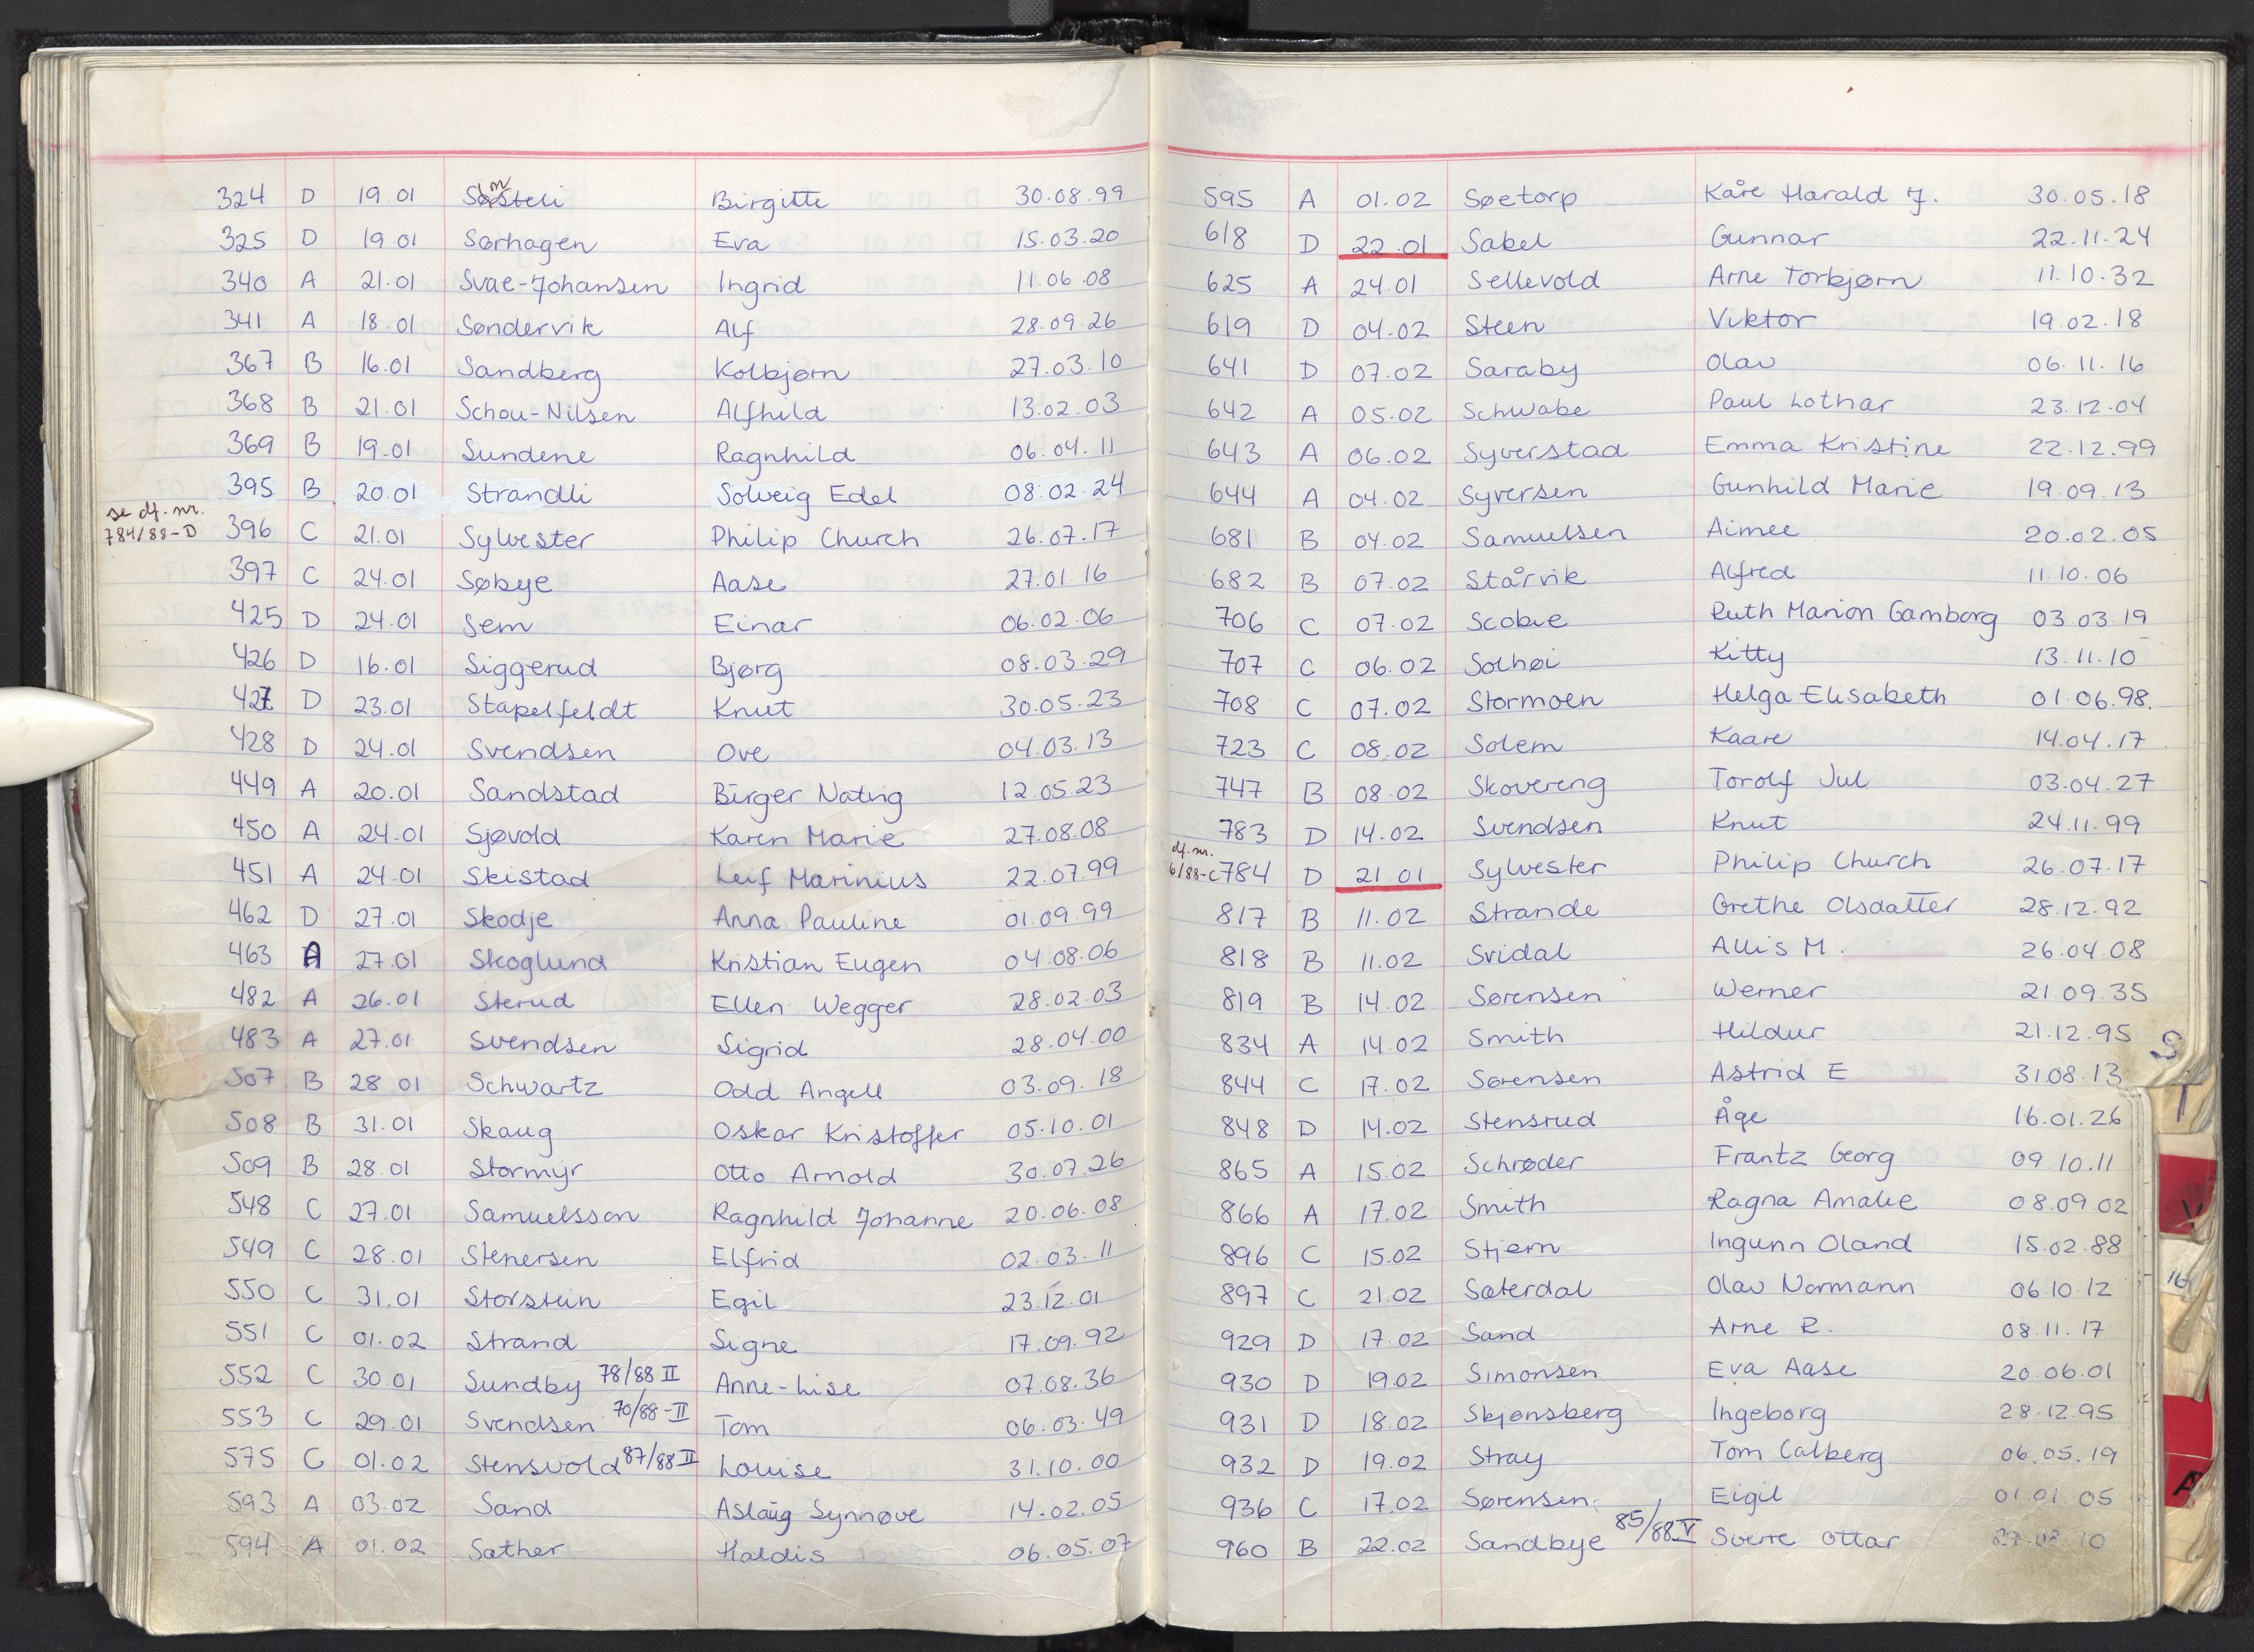 324 D 19.01 Sømsteli Birgitte 30.08.99
325 D 19 01 Sørhagen Eva 15.03.20
340 A 21.01 Svae-Johansen Ingrid 11.06.08
341 A 18.01 Søndervik Alf 28.09.26
367 B 16.01 Sandberg Kolbjørn 27.03.10
368 B 21.01 Schou-Nilsen Alfhild 13.02.03
369 B 19.01 Sundene Ragnhild 06.04.11
395 B 20.01 Strandli Solveig Edel 08.02.24
se df. nr.
784/88-D 396 C 21.01 Sylvester Philip Church 26.07.17
397 C 24.01 Søbye Aase 27.01.16
425 D 24.01 Sem Einar 06.02.06
426 D 16.01 Siggerud Bjørg 08.03.29
427 D 23.01 Stapelfeldt Knut 30.05.23
428 D 24.01 Svendsen Ove 04.03.13
449 A 20.01 Sandstad Birger Natvig 12.05.23
450 A 24.01 Sjøvold Karen Marie 27.08.08
451 A 24.01 Skistad Leif Marinius 22.07.99
462 D 27.01 Skodje Anna Pauline 01.09.99
463 A 27.01 Skoglund Kristian Eugen 04.08.06
482 A 26.01 Sterud Ellen Wegger 28.02.03
483 A 27.01 Svendsen Sigrid 28.04.00
507 B 28.01 Schwartz Odd Angell 03.09.18
508 B 31.01 Skaug Oskar Kristoffer 05.10.01
509 B 28.01 Stormyr Otto Arnold 30.07.26
548 C 27.01 Samuelsson Ragnhild Johanne 20.06.08
549 C 28.01 Stenersen Elfrid 02.03.11
550 C 31.01 Storstein Egil 23.12.01
551 C 01.02 Strand Signe 17.09.92
552 C 30.01 Sundby 78/88 II Anne-Lise 07.08.36
553 C 29.01 Svendsen 70/88-II Tom 06.03.49
575 C 01.02 Stensvold 87/88 II Louise 31.10.00
593 A 03.02 Sand Aslaug Synnøve 14.02.05
594 A 01.02 Sæther Haldis 06.05.07
595 A 01.02 Søetorp Kåre Harald J. 30.05.18
618 D 22.01 Sabel Gunnar 22.11.24
625 A 24.01 Sellevold Arne Torbjørn 11.10.32
619 D 04.02 Steen Viktor 19.02.18
641 D 07.02 Saraby Olav 06.11.16
642 A 05.02 Schwabe Paul Lothar 23.12.04
643 A 06.02 Syverstad Emma Kristine 22.12.99
644 A 04.02 Syversen Gunhild Marie 19.09.13
681 B 04.02 Samuelsen Aimee 20.02.05
682 B 07.02 Stårvik Alfred 11.10.06
706 C 07.02 Scobie Ruth Marion Gamborg 03.03.19
707 C 06.02 Solhøi Kitty 13.11.10
708 C 07.02 Stormoen Helga Elisabeth 01.06.98.
723 C 08.02 Solem Kaare 14.04.17
747 B 08.02 Skovereng Torolf Jul 03.04.27
783 D 14.02 Svendsen Knut 24.11.99
df. nr.
6/88-C 784 D 21.01 Sylvester Philip Church 26.07.17
817 B 11.02 Strande Grethe Olsdatter 28.12.92
818 B 11.02 Svidal Allis M. 26.04.08
819 B 14.02 Sørensen Werner 21.09.35
834 A 14.02 Smith Hildur 21.12.95
S
844 C 17.02 Sørensen Astrid E 31.08.13
848 D 14.02 Stensrud Åge 16.01.26
865 A 15.02 Schrøder Frantz Georg 09.10.11
866 A 17.02 Smith Ragna Amalie 08.09.02
896 C 15.02 Stjern Ingunn Oland 15.02.88
897 C 21.02 Sæterdal Olav Normann 06.10.12
929 D 17.02 Sand Arne R. 08.11.17
930 D 19.02 Simonsen Eva Aase 20.06.01
931 D 18.02 Skjønsberg Ingeborg 28.12.95
932 D 19.02 Stray Tom Calberg 06.05.19
936 C 17.02 Sørensen Eigil 01.01.05
960 B 22.02 Sandbye 85/88 V Sverre Ottar